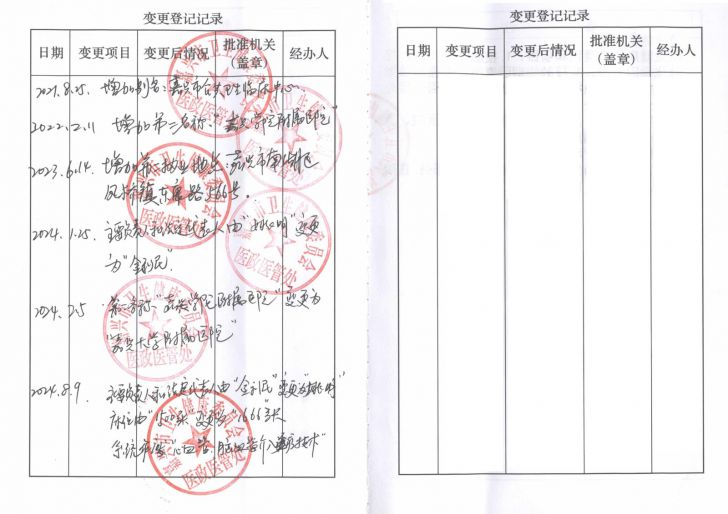 变更登记记录
日期 变更项目 变更后情况 批准机关（盖章） 经办人
2021.8.25. 增加别名：嘉兴市公共卫生临床中心.
2022.2.11 增加第二名称："嘉兴学院附属医院"
2023.6.14. 增加第二执业地点：嘉兴市南湖区
凤桥镇 路566号.
2024.1.25. 主要负责人和法定代表人由"姚明"变更
为"金利民".
2024.2.5 第二名称"嘉兴学院附属医院"变更为
"嘉兴大学附属医院"
2024.8.9. 主要负责人和法定代表人由"金利民"变更为"姚明"
床位由"1500张"变更为"1666"张
"心血管、 介入 技术"
医政医管处
医政医管处
医政医管处
医政医管处
医政医管处
医政医管处
变更登记记录
日期 变更项目 变更后情况 批准机关（盖章） 经办人